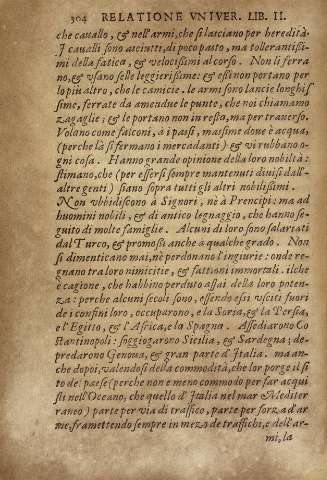 304 RELATIONE VNIVER. LIB. II.
che cauallo, & nell'armi, che si lasciano per heredità.
I caualli sono asciutti, di poco pasto, ma tollerantißi
mi della fatica, & velocißimi al corso. Non li ferra
no, & vsano selle leggierißime: & essi non portano per
lo più altro, che le camicie. le armi sono lancie longhiß
sime, ferrate da amendue le punte, che noi chiamamo
zagaglie; & le portano non in resta, ma per trauerso.
Volano come falconi, à i passi, maßime doue è acqua,
(perche là si fermano i mercadanti) & vi rubbano o-
gni cosa. Hanno grande opinione della loro nobiltà:
stimano, che (per essersi sempre mantenuti diuisi dall'-
altre genti) siano sopra tutti gli altri nobilißimi.
Non vbbidiscono à Signori, nè à Prencipi: ma ad
huomini nobili, & di antico legnaggio, che hanno se-
guito di molte famiglie. Alcuni di loro sono salariati
dal Turco, & promoßi anche à qualche grado. Non
si dimenticano mai, nè perdonano l'ingiurie: onde re-
gnano tra loro nimicitie, & fattioni immortali. ilche
è cagione, che habbino perduto assai della loro poten-
za: perche alcuni secoli sono, essendo eßi vsciti fuori
de i confini loro, occuparono, e la Soria, & la Persia,
e l'Egitto, & l'Africa, e la Spagna. Assediarono Co
stantinopoli: soggiogarono Sicilia, & Sardegna; de-
predarono Genoua, & gran parte d'Italia. ma an-
che dopoi, valendosi della commodità, che lor porge il si
to de' paesi (perche non è meno commodo per far acqui
sti nell'Oceano, che quello d'Italia nel mar Mediter
raneo) parte per via di traffico, parte per forza d'ar
me, framettendo sempre in meza de traffichi, e dell'ar-
mi, la